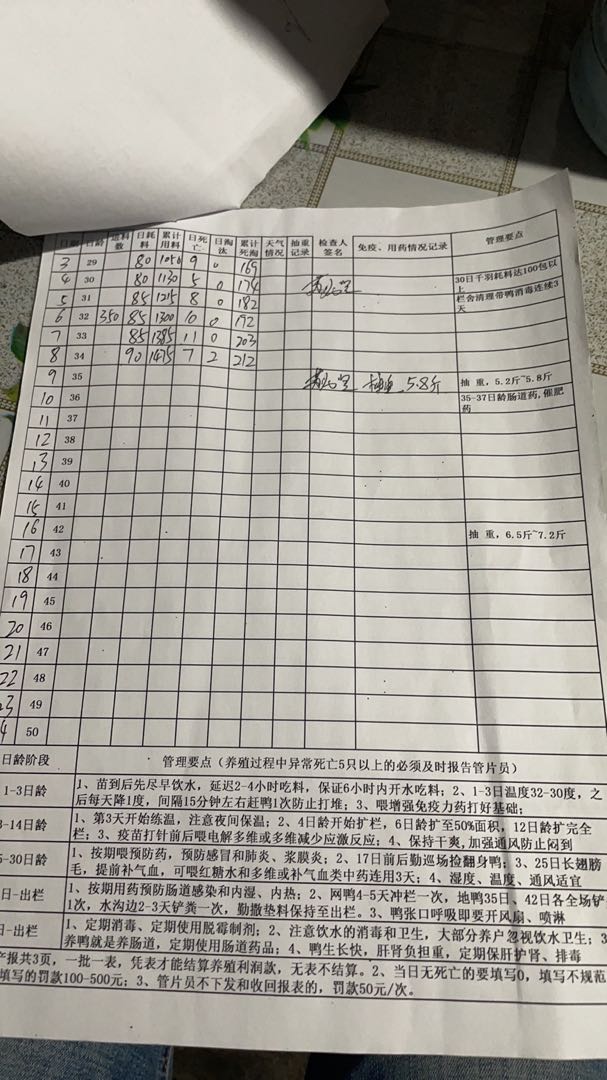 日期 日龄 进料数 日耗料 累计用料 日死亡 日淘汰 累计死淘 天气情况 抽重记录 检查人签名 免疫、用药情况记录 管理要点
3 29 80 1050 9 0 169
4 30 80 1130 5 0 174 30日千羽耗料达100包以上
5 31 85 1215 8 0 182 栏舍清理带鸭消毒连续3天
6 32 350 85 1300 10 0 192
7 33 85 1385 11 0 203
8 34 90 1475 7 2 212
9 35 抽重 5.8斤 抽 重，5.2斤~5.8斤
10 36 35-37日龄肠道药,催肥药
11 37
12 38
13 39
14 40
15 41
16 42 抽 重，6.5斤~7.2斤
17 43
18 44
19 45
20 46
21 47
22 48
23 49
4 50
日龄阶段 管理要点（养殖过程中异常死亡5只以上的必须及时报告管片员）
1-3日龄 1、苗到后先尽早饮水，延迟2-4小时吃料，保证6小时内开水吃料；2、1-3日温度32-30度，之
后每天降1度，间隔15分钟左右赶鸭1次防止打堆；3、喂增强免疫力药打好基础；
3-14日龄 1、第3天开始练温，注意夜间保温；2、4日龄开始扩栏，6日龄扩至50%面积，12日龄扩完全
栏；3、疫苗打针前后喂电解多维或多维减少应激反应；4、保持干爽,加强通风防止闷到
5-30日龄 1、按期喂预防药，预防感冒和肺炎、浆膜炎；2、17日前后勤巡场捡翻身鸭，3、25日长翅膀
毛，提前补气血，可喂红糖水和多维或补气血类中药连用3天；4、湿度、温度、通风适宜
日-出栏 1、按期用药预防肠道感染和内湿、内热；2、网鸭4-5天冲栏一次，地鸭35日、42日各全场铲
1次，水沟边2-3天铲粪一次，勤撒垫料保持至出栏。3、鸭张口呼吸即要开风扇、喷淋
日-出栏 1、定期消毒、定期使用脱霉制剂；2、注意饮水的消毒和卫生，大部分养户忽视饮水卫生；3、
养鸭就是养肠道，定期使用肠道药品；4、鸭生长快，肝肾负担重，定期保肝护肾、排毒
报共3页，一批一表，凭表才能结算养殖利润款，无表不结算。2、当日无死亡的要填写0，填写不规范
填写的罚款100-500元；3、管片员不下发和收回报表的，罚款50元/次。